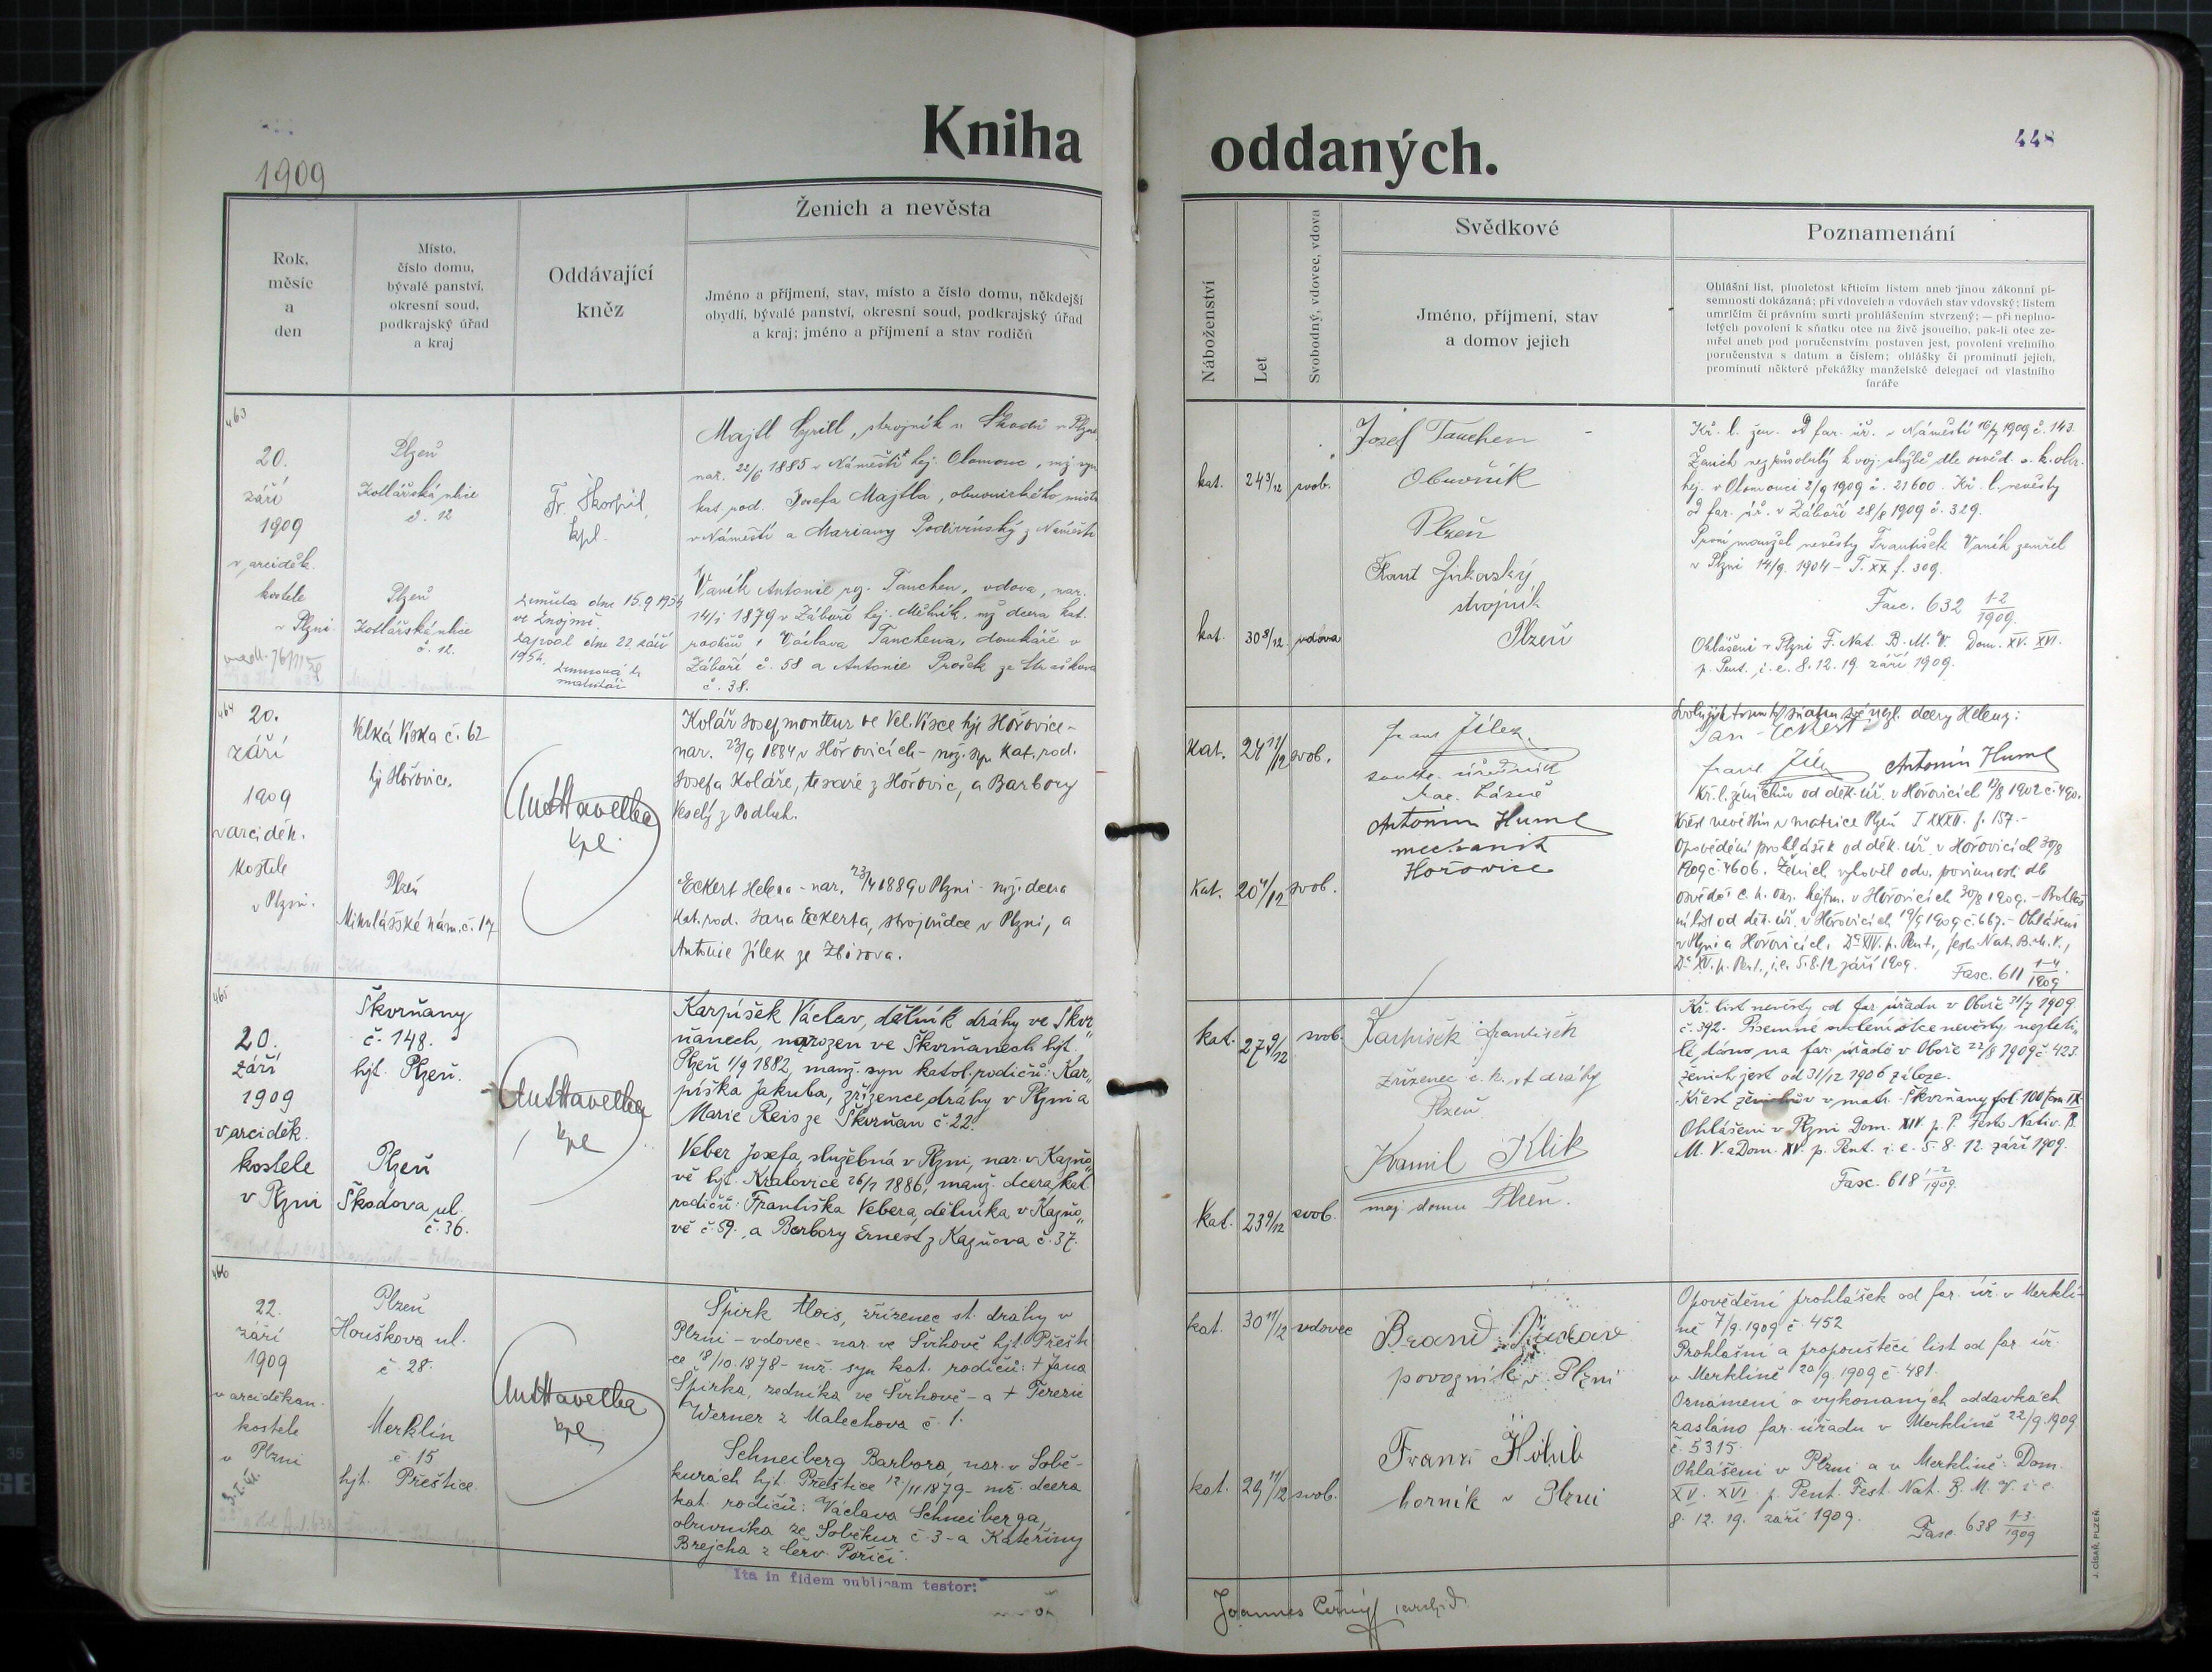 Kniha
oddaných.
448
1909
Rok,
měsíc
a
den
Místo,
číslo domu,
bývalé panství,
okresní soud,
podkrajský úřad
a kraj
Oddávající
kněz
Ženich a nevěsta
Jméno a příjmení, stav, místo a číslo domu, někdejší
obydlí, bývalé panství, okresní soud, podkrajský úřad
a kraj; jméno a příjmení a stav rodičů
Náboženství
Let
Svobodný, vdovec, vdova
Svědkové
Jméno, příjmení, stav
a domov jejich
Poznamenání
Ohlášní list, plnoletost křticím listem aneb jinou zákonní pí-
semností dokázaná; při vdovcích a vdovách stav vdovský; listem
umrlčím či právním smrti prohlášením stvrzený; — při neplno-
letých povolení k sňatku otce na živě jsoucího, pak-li otec ze-
mřel aneb pod poručenstvím postaven jest, povolení vrchního
poručenstva s datum a číslem; ohlášky či prominutí jejich,
prominutí některé překážky manželské delegací od vlastního
faráře
463
20.
září
1909
v arciděk.
kostele
v Plzni
Plzeň
Kotlářská ulice
č. 12
Plzeň
Kotlářská ulice
č. 12.
Fr. Škorpil,
kpl.
zemřela dne 15.9 1954
ve Znojmě.
zapsal dne 22. září
1954.
Majtl Cyrill, strojník u Škodů v Plzni,
nar. 22/6 1885 v Náměšti hej. Olomouc, mž syn
kat. rod. Josefa Majtla, obuvnického mistra
v Náměšti a Mariany Podivínský z Náměště
Vaník Antonie roz. Tauchen, vdova, nar.
14/1 1879 v Záboří hej. Mělník, mž dcera kat.
rodičů: Václava Tauchena, domkáře v
Záboří č. 58 a Antonie Prošek ze
č. 38.
kat.
24 3/12
svob.
kat.
30 8/12
vdova
Josef Tauchen
Obuvník
Plzeň
Frant Jirkovský,
strojník
Plzeň
Kř. l. žen. od far. úř. v Náměšti 16/7 1909 č. 143.
Ženich nezpůsobilý k voj. službě dle osvěd. c. k. okr.
hej. v Olomouci 2/9 1909 č. 21600. Kř. l. nevěsty
od far. úř. v Záboří 28/8 1909 č. 329.
První manžel nevěsty František Vaník zemřel
v Plzni 14/9. 1904 – T. XX f. 309.
Fasc. 632 1-2/1909
Ohlášeni v Plzni F. Nat. B. M. V. Dom. XV. XVI.
p. Pent., i. e. 8. 12. 19. září 1909.
464
20.
září
1909
v arciděk.
kostele
v Plzni.
Velká Víska č. 62
hj Hořovice.
Plzeň
Mikulášské nám. č. 17
Ant Havelka
kpl.
Kolář Josef monteur ve Vel. Vísce hjt Hořovice –
nar. 23/9 1884 v Hořovicích – mž. syn kat. rod.
Josefa Koláře, tesaře z Hořovic, a Barbory
Veselý z Podluh.
Eckert Helena – nar. 23/4 1889 v Plzni – mž. dcera
kat. rod. Jana Eckerta, strojvůdce v Plzni, a
Antonie Jílek ze Zbirova.
kat.
24 11/12
svob.
kat.
20 4/12
svob.
Frant Jílek
úředník
Lázně
Antonín Huml
mechanik
Hořovice
Svoluji k tomuto sňatku své nezl. dcery Heleny:
Jan Eckert
Frant Jílek Antonín Huml
Kř. l. ženichův od děk. úř. v Hořovicích 12/8 1902 č. 490.
Křest nevěstin v matrice Plzeň T XXXII. f. 157. –
Opovědění prohlášek od děk. úř. v Hořovicích 30/8
1909 č. 4606. Ženich vyhověl odv. povinnosti dle
osvědč c. k. okr. hejtm. v Hořovicích 30/8 1909. – Prohlaš
ní list od děk. úř. v Hořovicích 19/9 1909 č. 667. – Ohlášeni
v Plzni a Hořovicích. Dca XIV. p. Pent., fest. Nat. B. M. V.,
Dca XV. p. Pent., i. e. 5. 8. 12 září 1909.
Fasc. 611 1-4/1909
465
20.
září
1909
v arciděk.
kostele
v Plzni
Škvrňany
č. 148.
hjt. Plzeň.
Plzeň
Škodova ul.
č. 36.
Ant Havelka
kpl
Karpíšek Václav, dělník dráhy ve Škvr-
ňanech, narozen ve Škvrňanech hjt.
Plzeň 1/9 1882, manž. syn katol. rodičů: Kar-
píška Jakuba, zřízence dráhy v Plzni a
Marie Reis ze Škvrňan č. 22.
Veber Josefa, služebná v Plzni, nar. v Kazňo-
vě hjt. Kralovice 26/1 1886, manž. dcera kat.
rodičů: Františka Vebera, dělníka v Kazňo-
vě č. 59., a Barbory Ernest z Kazňova č. 37.
kat.
27 9/12
svob.
kat.
23 9/12
svob.
Karpíšek František
zřízenec c. k. st dráhy
Plzeň
Kamil Klik
maj domu Plzeň.
Kř. list nevěsty od far. úřadu v Oboře 31/7 1909
č. 392. Písemné svolení otce nevěsty nezleti-
lé, dáno na far. úřadě v Oboře 22/8 1909 č. 423.
Ženich jest od 31/12 1906 v záloze.
Křest ženichův v matr. Škvrňany fol. 100 tom IX
Ohlášeni v Plzni Dom. XIV. p. P. Festo Nativ. B.
M. V. a Dom. XV. p. Pent. i. e. 5. 8. 12. září 1909.
Fasc. 618 1-2/1909.
466
22.
září
1909
v arciděkan.
kostele
v Plzni
Plzeň
Houškova ul.
č. 28.
Merklín
č. 15
hjt. Přeštice.
Ant Havelka
kpl.
Špirk Alois, zřízenec st. dráhy v
Plzni – vdovec – nar. ve Švihově hjt. Přešti
ce 18/10. 1878 – mž. syn kat. rodičů: † Jana
Špirka, ředníka ve Švihově – a † Terezie
Werner z Malechova č. 1.
Schneiberg Barbora, nar. v Sobě-
kurách hjt. Přeštice 12/11 1879 – mž. dcera
kat. rodičů: Václava Schneiberga,
obuvníka ze Soběkur č. 3 – a Kateřiny
Brejcha z Červ. Poříčí.
"Ita in fidem publicam testor:"
kat.
30 11/12
vdovec
kat.
29 11/12
svob.
povozník v Plzni
Franz Holub
horník v Plzni
Opovědění prohlášek od far. úř. v Merklí-
ně 7/9. 1909 č. 452
Prohlášní a propouštěcí list od far. úř.
v Merklíně 20/9. 1909 č. 481.
Oznámení o vykonaných oddavkách
zasláno far. úřadu v Merklíně 22/9. 1909
č. 5315.
Ohlášeni v Plzni a v Merklíně: Dom.
XV. XVI. p. Pent. Fest. Nat. B. M. V. i. e.
8. 12. 19. září 1909.
Fasc. 638 1-3/1909
Joannes Černý
J. CÍSAŘ, PLZEŇ